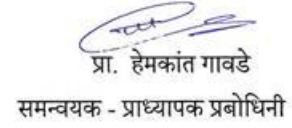 प्रा. हेमकांत गावडे
समन्वयक - प्राध्यापक प्रबोधिनी